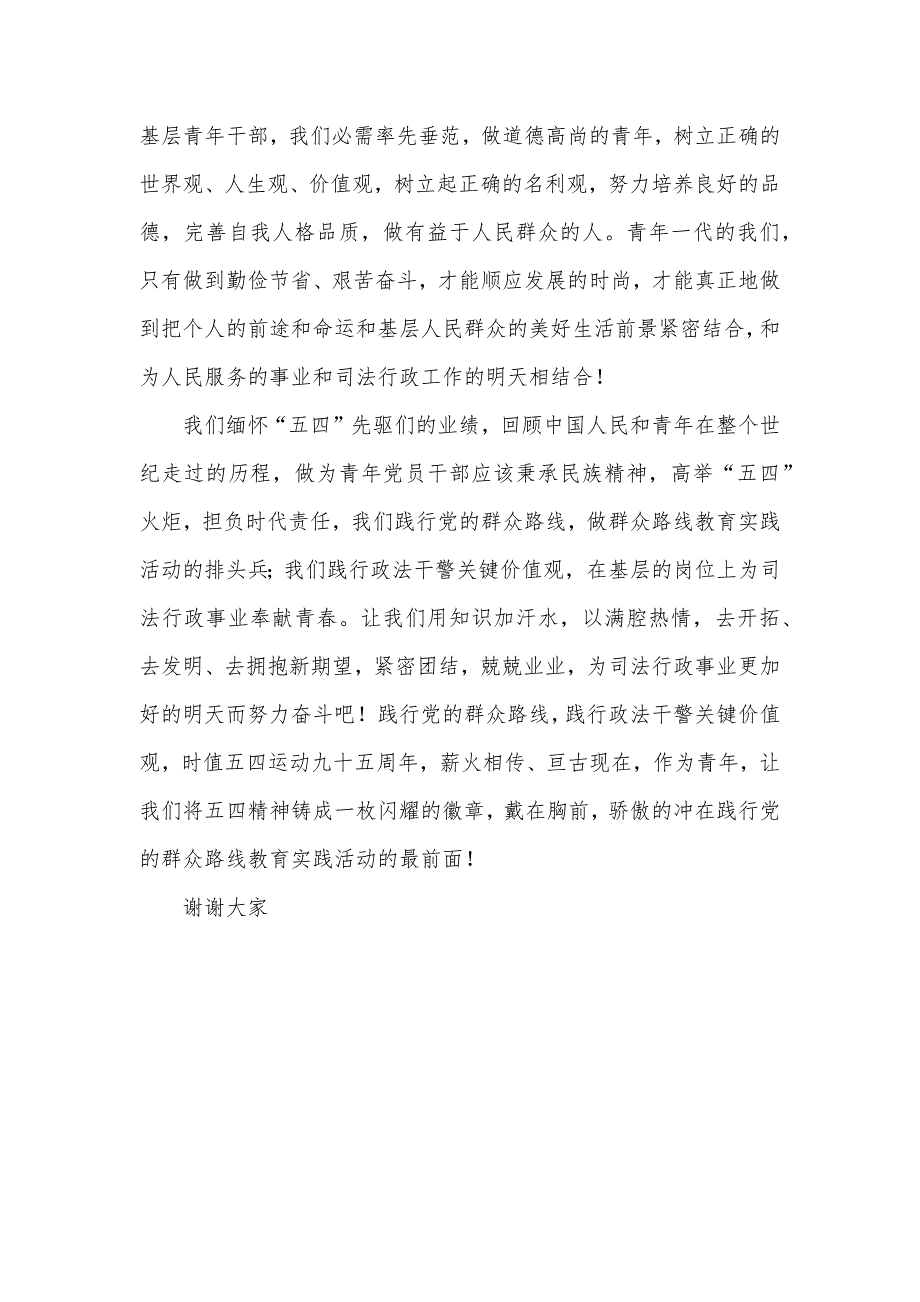 基层青年干部，我们必需率先垂范，做道德高尚的青年，树立正确的
世界观、人生观、价值观，树立起正确的名利观，努力培养良好的品
德，完善自我人格品质，做有益于人民群众的人。青年一代的我们，
只有做到勤俭节省、艰苦奋斗，才能顺应发展的时尚，才能真正地做
到把个人的前途和命运和基层人民群众的美好生活前景紧密结合，和
为人民服务的事业和司法行政工作的明天相结合！
我们缅怀“五四”先驱们的业绩，回顾中国人民和青年在整个世
纪走过的历程，做为青年党员干部应该秉承民族精神，高举“五四”
火炬，担负时代责任，我们践行党的群众路线，做群众路线教育实践
活动的排头兵；我们践行政法干警关键价值观，在基层的岗位上为司
法行政事业奉献青春。让我们用知识加汗水，以满腔热情，去开拓、
去发明、去拥抱新期望，紧密团结，兢兢业业，为司法行政事业更加
好的明天而努力奋斗吧！践行党的群众路线，践行政法干警关键价值
观，时值五四运动九十五周年，薪火相传、亘古现在，作为青年，让
我们将五四精神铸成一枚闪耀的徽章，戴在胸前，骄傲的冲在践行党
的群众路线教育实践活动的最前面！
谢谢大家